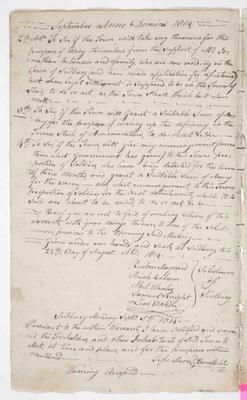 September Anno Domini 1814
2d Art. To See if the Town will take any measures for the
purpose of being themselves from the Support of Mr. Jo-
nathan and family, who are now residing in the
Town of Sudbury and have made application for assistance
but whose Settlement is Supposed to be in the Town of
to do or act as the Town Shall think but when
met
3d To See if the Town will grant a Suitable Sum of Mon-
ey for the purpose of making up the deficiency in the
Towns Stock of Ammunition, to do or act &c.
4th To See if the Town will give any encouragement (more
than what Government has given) to the Same pro-
portion of Soldiers who have been detached for the term
of three months and grant a Suitable Sum of Money
for the Same. also what encouragement to the Towns
Proportion of Soldiers in the Next detachment which it is
Said are about to be made to do or act &c.
Hereof you are not to fail of making return of this
warrant with your doings thereon to one of the Select-
men previous to the opening Said Meeting
Given under our hands and Seals at Sudbury this
22d Day of August AD. 1814
Reuben Maynard
Abel Wheeler
Samuel Knight
Levi
Selectmen
of
Sudbury
Sudbury Monday Sept. 5th 1814
Pursuant to the within Warrant I have Notifyed and warn-
ed the Freeholders and other Inhabitants of Said Town to
Meet at time and place and for the purposes within
Mentioned
Jesse Constable
Warning